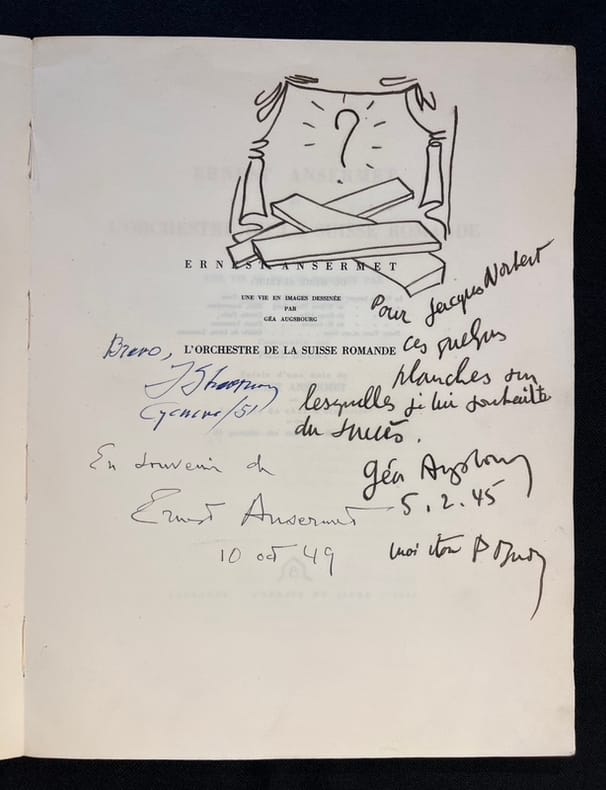 ?
ERNEST ANSERMET
UNE VIE EN IMAGES DESSINÉE
PAR
GÉA AUGSBOURG
L'ORCHESTRE DE LA SUISSE ROMANDE
Pour Jacques Norbert
ces quelques
planches sur
lesquelles je lui souhaite
du succès.
Géa Augsbourg
5.2.45
moi
Bravo,
I Strawinsky
Geneve/51
En souvenir de
Ernest Ansermet
10 oct 49